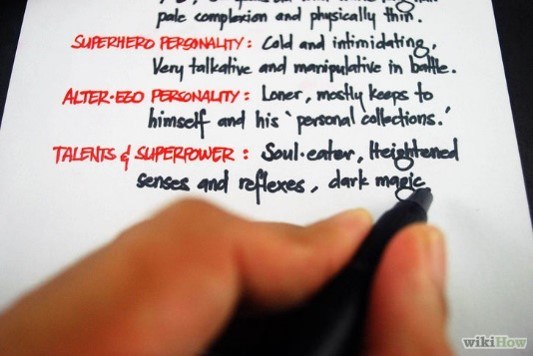 pale complexion and physically thin.
SUPERHERO PERSONALITY: Cold and intimidating,
Very talkative and manipulative in battle.
ALTER-EGO PERSONALITY: Loner, mostly keeps to
himself and his 'personal collections.'
TALENTS & SUPERPOWER: Soul-eater, Heightened
senses and reflexes, dark magic
wikiHow